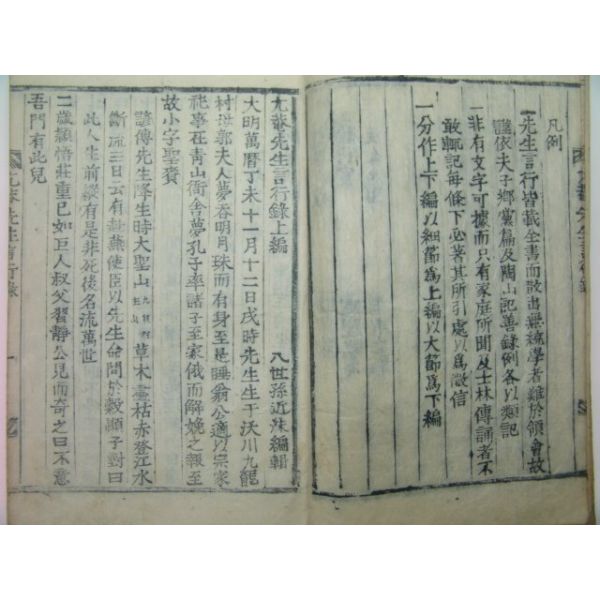 凡例
一先生言行皆載全書而散出無統學者難於領會故
謹依夫子鄉黨篇及陶山記善錄例各以類記
一非有文字可據而只有家庭所聞及士林傳誦者不
敢輒記每條下必著其所引處以爲徵信
一分作上下編以細節爲上編以大節爲下編
尤菴先生言行錄上編
八世孫近洙編輯
大明萬曆丁未十一月十二日戌時先生生于沃川九龍
村母郭夫人夢呑明月珠而有身至是睡翁公適以宗家
祀事在靑山衙舍夢孔子率諸子至家俄而解娩之報至
故小字聖賚
諺傳先生降生時大聖山
草木盡枯赤登江水
斷流三日云有
燕使臣以先生命問於
對曰
此人生前縱有是非死後名流萬世
二歲
莊重已如巨人叔父習靜公見而奇之曰不意
吾門有此兒
尤菴先生言行錄